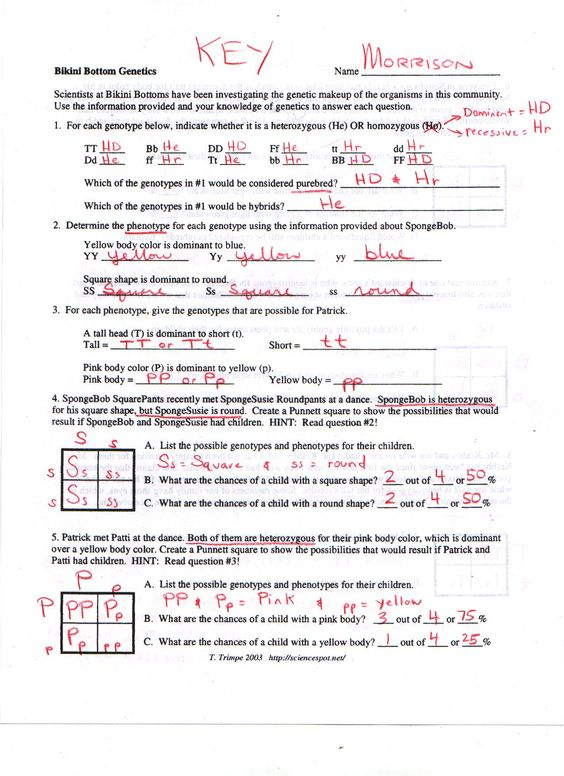 KEY
MORRISON
Bikini Bottom Genetics Name
Scientists at Bikini Bottoms have been investigating the genetic makeup of the organisms in this community.
Use the information provided and your knowledge of genetics to answer each question.
1. For each genotype below, indicate whether it is a heterozygous (He) OR homozygous (Ho). Dominent = HD
recessive = Hr
TT HD Bb He DD HD Ff He tt Hr dd Hr
Dd He ff Hr Tt He bb Hr BB HD FF HD
Which of the genotypes in #1 would be considered purebred? HD & Hr
Which of the genotypes in #1 would be hybrids? He
2. Determine the phenotype for each genotype using the information provided about SpongeBob.
Yellow body color is dominant to blue.
YY yellow Yy yellow yy blue
Square shape is dominant to round.
SS Square Ss Square ss round
3. For each phenotype, give the genotypes that are possible for Patrick.
A tall head (T) is dominant to short (t).
Tall = TT or Tt Short = tt
Pink body color (P) is dominant to yellow (p).
Pink body = PP or Pp Yellow body = pp
4. SpongeBob SquarePants recently met SpongeSusie Roundpants at a dance. SpongeBob is heterozygous
for his square shape, but SpongeSusie is round. Create a Punnett square to show the possibilities that would
result if SpongeBob and SpongeSusie had children. HINT: Read question #2!
S s
A. List the possible genotypes and phenotypes for their children.
Ss = Square & ss = round
s Ss ss
B. What are the chances of a child with a square shape? 2 out of 4 or 50 %
s Ss ss
C. What are the chances of a child with a round shape? 2 out of 4 or 50 %
5. Patrick met Patti at the dance. Both of them are heterozygous for their pink body color, which is dominant
over a yellow body color. Create a Punnett square to show the possibilities that would result if Patrick and
Patti had children. HINT: Read question #3!
P p
A. List the possible genotypes and phenotypes for their children.
PP & Pp = Pink & pp = yellow
P PP Pp
B. What are the chances of a child with a pink body? 3 out of 4 or 75 %
p Pp pp
C. What are the chances of a child with a yellow body? 1 out of 4 or 25 %
T. Trimpe 2003 http://sciencespot.net/